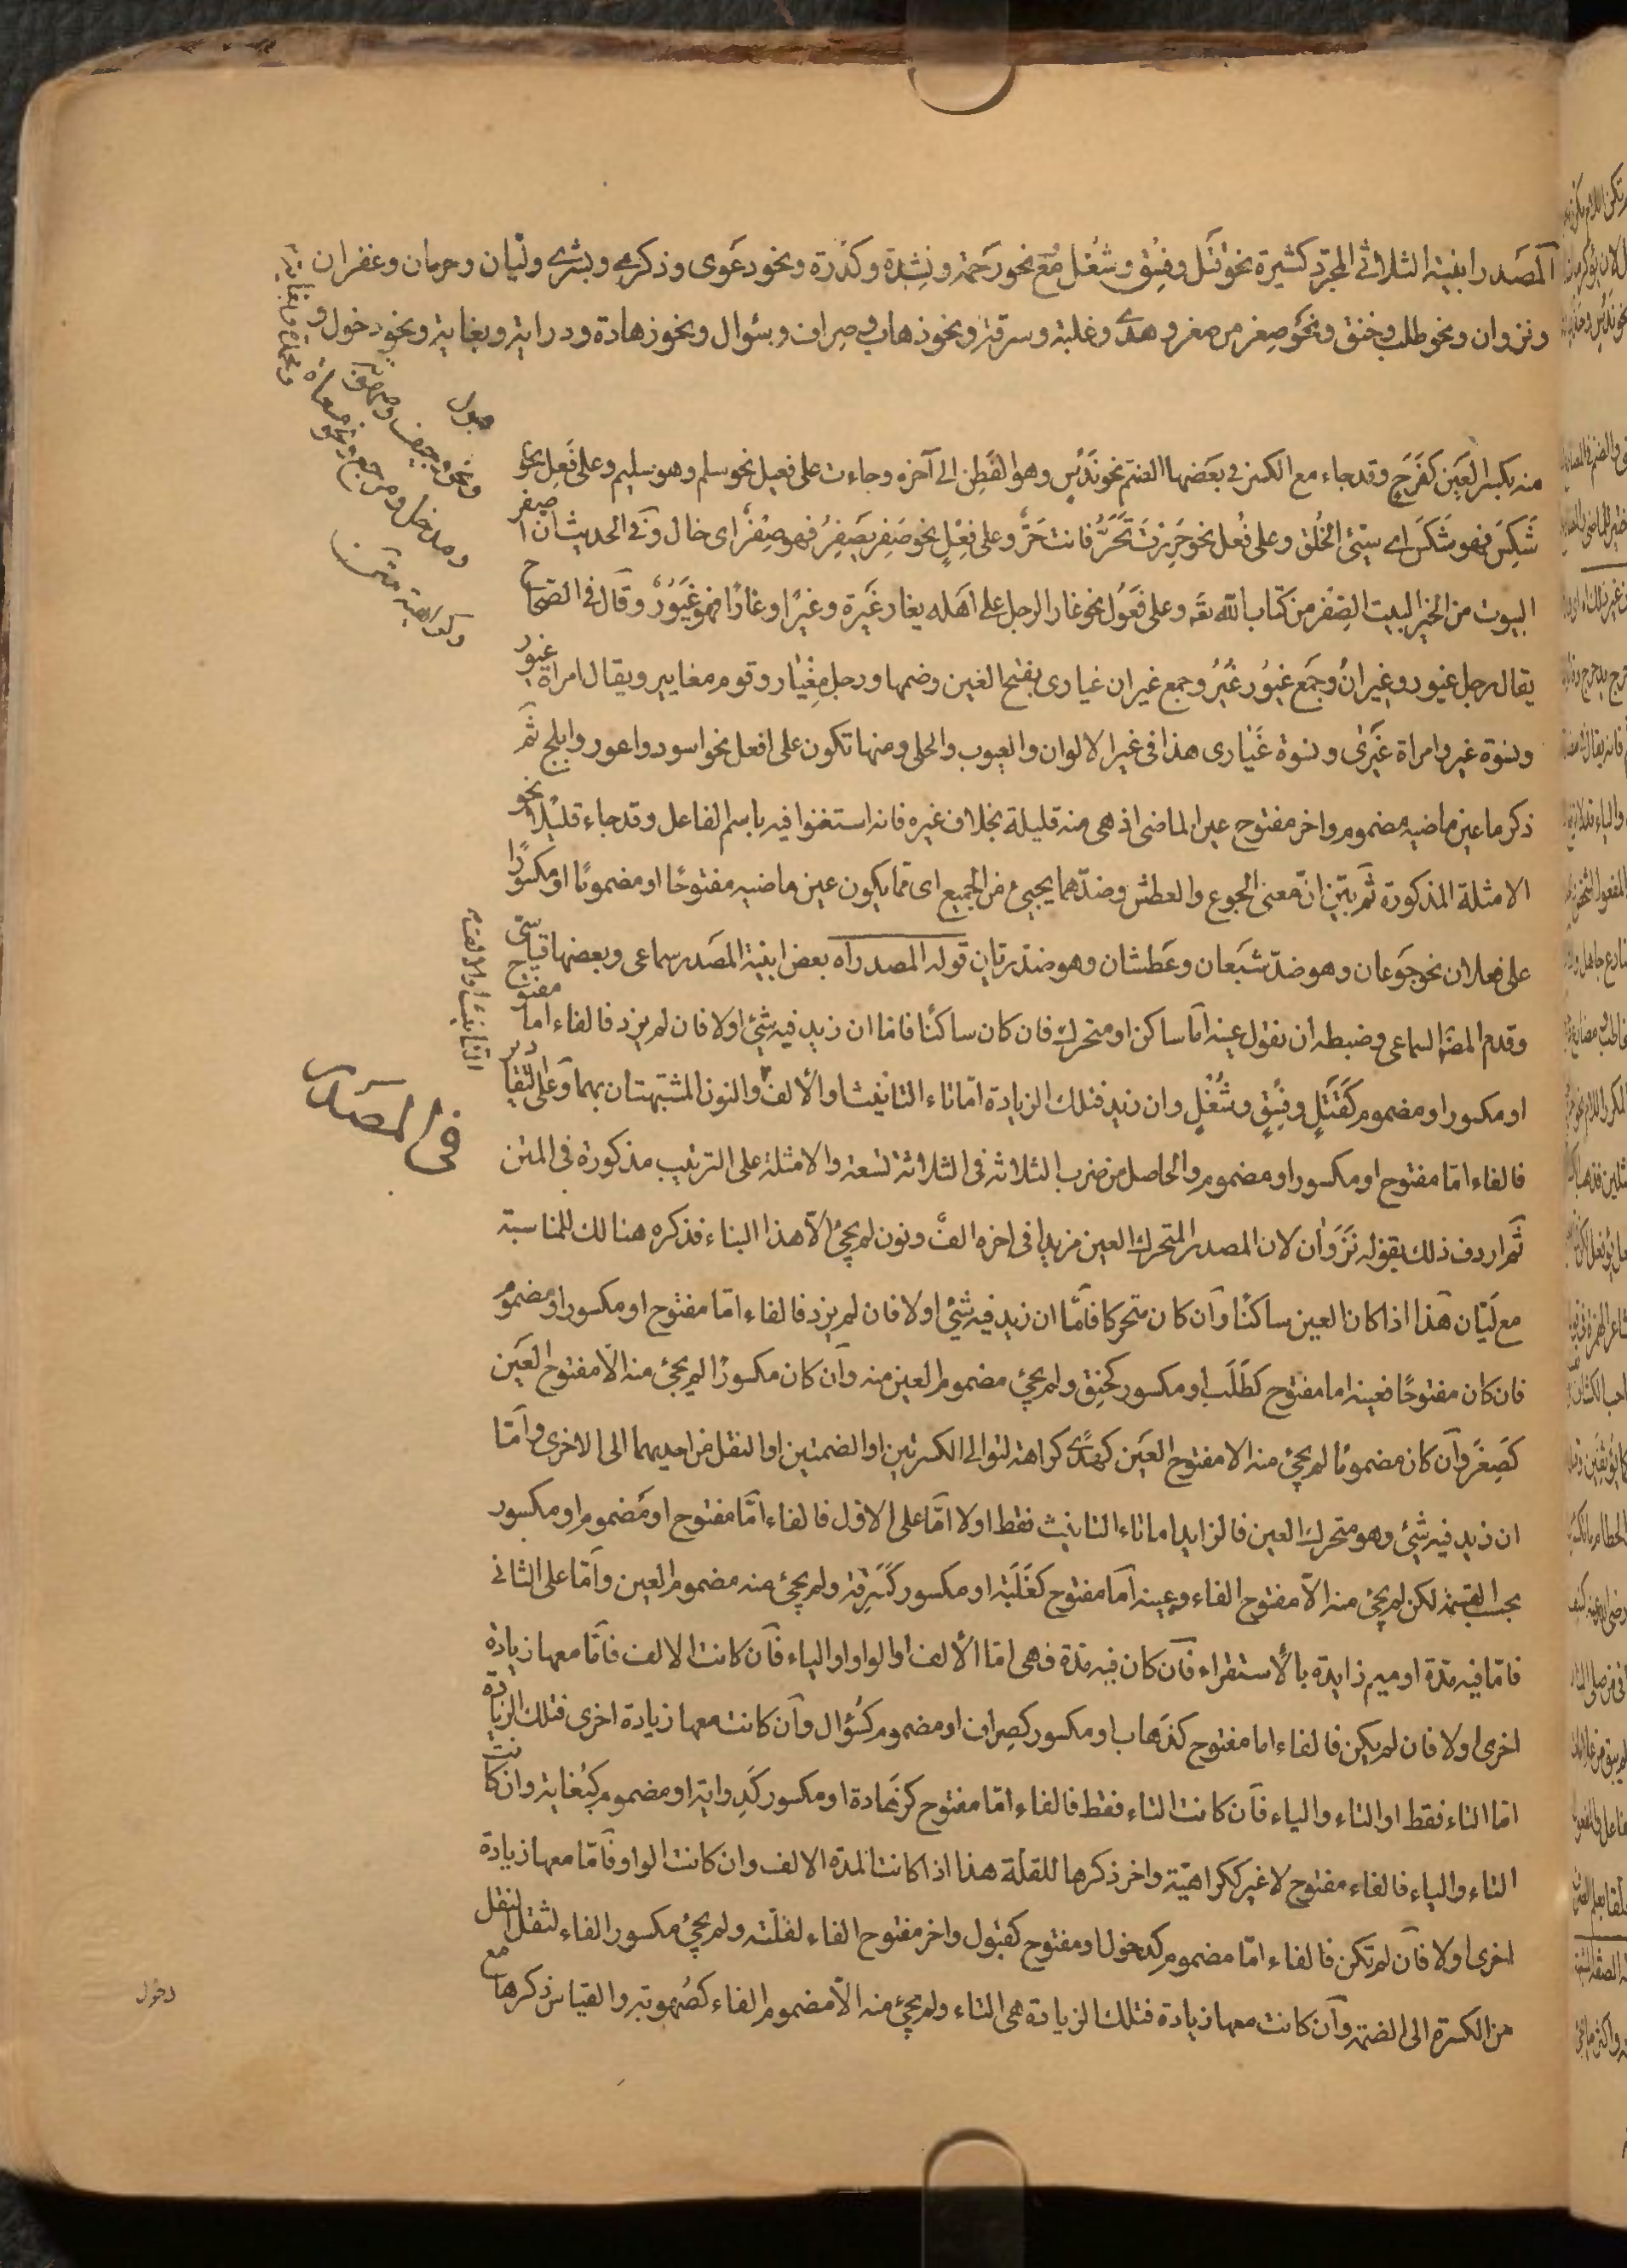 المصدر ابنية الثلاثى المجرد كثيرة نحو قتل وفسق وشغل مع نحو رحمة ونشدة وكدرة ونحو دعوى وذكرى وبشرى وليان وحرمان وغفران
ونزوان ونحو طلب وخنق ونحو صغر من صغر وهدى وغلبة وسرقة ونحو ذهاب وصراف وسؤال ونحو زهادة ودراية وبغاية ونحو دخول و
قبول
ونحو وجيف وصهوبة
ومدخل ومرجع ونحو مسعاة
وكراهية
منه بكسر العين كفرح وقد جاء مع الكسر فى بعضها الضم نحو ندس وهو الفطن الى آخره وجاءت على فعيل نحو سلم وهو سليم وعلى فعل نحو
شكس فهو شكس اى سيئ الخلق وعلى فعل نحو حررت تحر فانت حر وعلى فعل نحو صفر يصفر فهو صفر اى خال وفى الحديث ان اصفر
البيوت من الخير البيت الصفر من كتاب الله تعه وعلى فعول نحو غار الرجل على اهله يغار غيرة وغيرا وغارا فهو غيور وقال فى الصحاح
يقال رجل غيور وغيران وجمع غيور غير وجمع غيران غيارى بفتح الغين وضمها ورجل مغيار وقوم مغايير ويقال امراة غيور
ونسوة غير وامراة غيرى ونسوة غيارى هذا فى غير الالوان والعيوب والحلى ومنها تكون على افعل نحو اسود واعور وابلج ثم
ذكر ما عين ماضيه مضموم واخر مفتوح عين الماضى اذ هى منه قليلة بخلاف غيره فانه استغنوا فيه باسم الفاعل وقد جاء قليلا نحو
الامثلة المذكورة ثم بين ان معنى الجوع والعطش وضدهما يجيئ من الجميع اى مما يكون عين ماضيه مفتوحا او مضموما او مكسورا
على فعلان نحو جوعان وهو ضد شبعان وعطشان وهو ضد ريان قوله المصدر اه بعض ابنية المصدر سماعى وبعضها قياسى
وقدم المصنف السماعى وضبطه ان نقول عينه اما ساكن او متحرك فان كان ساكنا فاما ان زيد فيه شئ اولا فان لم يزد فالفاء اما مفتوح
او مكسور او مضموم كقتل وفسق وشغل وان زيد فتلك الزيادة اما تاء التانيث او الالف والنون المشبهتان بهما وعلى التقادير
فى المصدر
فالفاء اما مفتوح او مكسور او مضموم والحاصل من ضرب الثلاثه فى الثلاثة تسعة والامثلة على الترتيب مذكورة فى المتن
ثم اردف ذلك بقوله نزوان لان المصدر المتحرك العين مزيدا فى اخره الف ونون لم يجئ الا هذا البناء فذكره هنا لك للمناسبة
مع ليان هذا اذا كان العين ساكنا وان كان متحركا فاما ان زيد فيه شئ اولا فان لم يزد فالفاء اما مفتوح او مكسور او مضموم
فان كان مفتوحا فعينه اما مفتوح كطلب او مكسور كخنق ولم يجئ مضموم العين منه وان كان مكسورا لم يجئ منه الا مفتوح العين
كصغر وان كان مضموما لم يجئ منه الا مفتوح العين كهدى كراهة لتوالى الكسرتين او الضمتين او النقل من احديهما الى الاخرى واما
ان زيد فيه شئ وهو متحرك العين فالزايد اما تاء التانيث فقط اولا اما على الاول فالفاء اما مفتوح او مضموم او مكسور
بحسب القسمة لكن لم يجئ منه الا مفتوح الفاء وعينه اما مفتوح كغلبة او مكسور كسرقة ولم يجئ منه مضموم العين واما على الثانى
فاما فيه مدة او ميم زايدة بالاستقراء فان كان فيه مدة فهى اما الالف او الواو او الياء فان كانت الالف فاما معها زيادة
اخرى اولا فان لم يكن فالفاء اما مفتوح كذهاب او مكسور كصراف او مضموم كسؤال وان كانت معها زيادة اخرى فتلك الزيادة
اما التاء فقط او التاء والياء فان كانت التاء فقط فالفاء اما مفتوح كزهادة او مكسور كدراية او مضموم كبغاية وان كانت
التاء والياء فالفاء مفتوح لا غير ككراهية واخر ذكرها للقلة هذا اذا كانت المدة الالف وان كانت الواو فاما معها زيادة
اخرى اولا فان لم تكن فالفاء اما مضموم كدخول او مفتوح كقبول واخر مفتوح الفاء لقلته ولم يجئ مكسور الفاء لثقل النقل
من الكسرة الى الضمة وان كانت معها زيادة فتلك الزيادة هى التاء ولم يجئ منه الا مضموم الفاء كصهوبة والقياس ذكرها مع
دخول